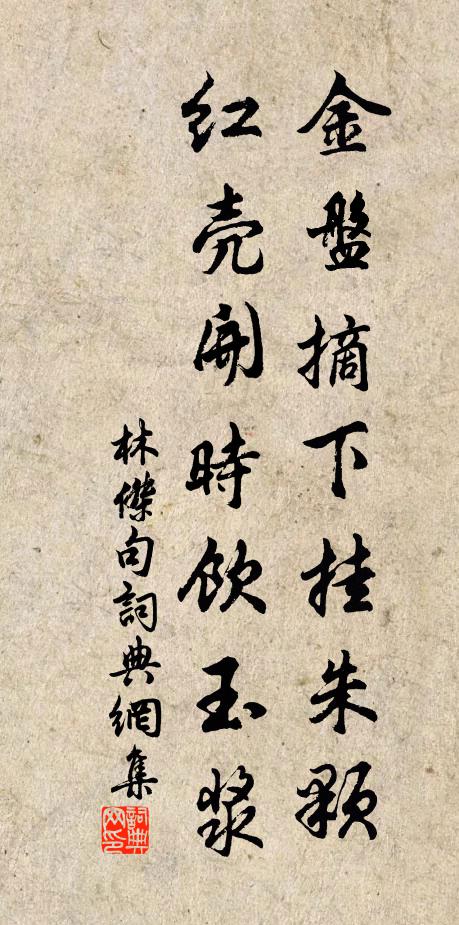 金盤摘下挂朱顆
紅壳開時飲玉漿
林傑句詞典網集
詞典网印